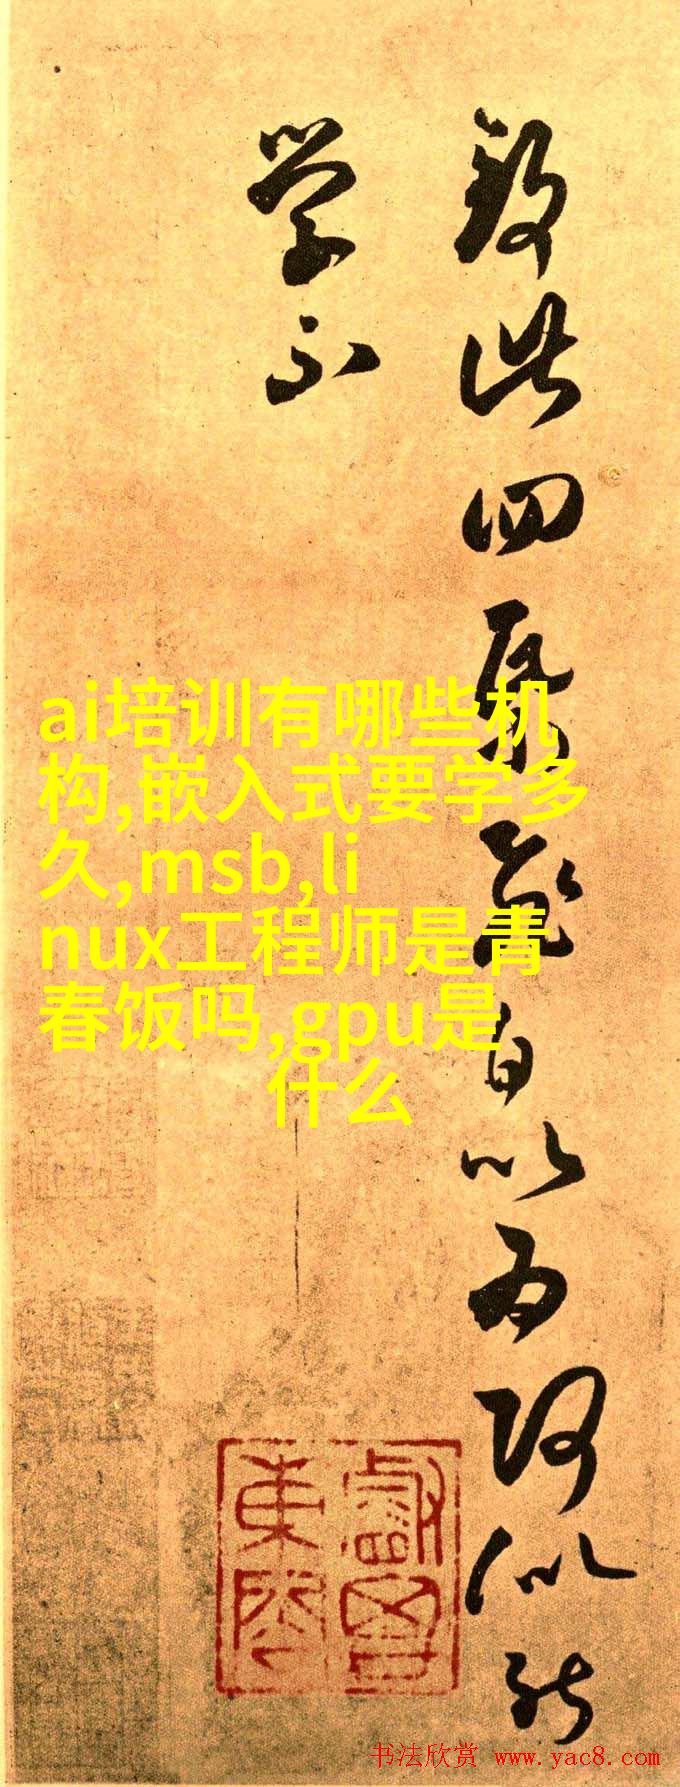 此四自以为似能
学不
ai培训有哪些机
构,嵌入式要学多
久,msb,li
nux工程师是青
春饭吗,gpu是
什么
书法欣赏 www.yac8.com